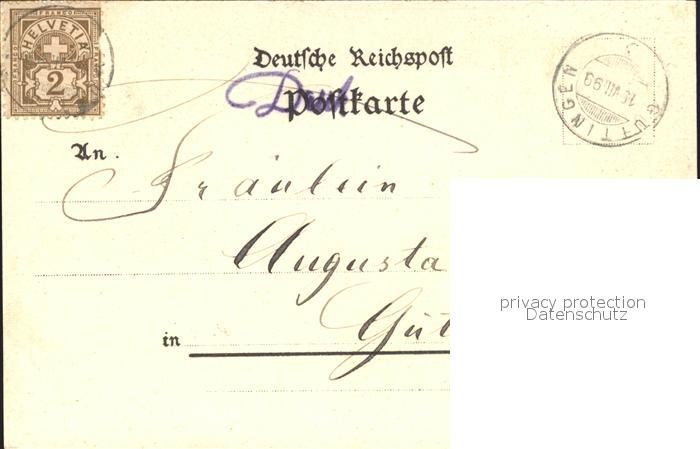 FRANCO
HELVETIA
2
Deutsche Reichspost
Postkarte
An.
Fräulein
Augusta
in Güt
GÜTTINGEN
15.VII.99
privacy protection
Datenschutz